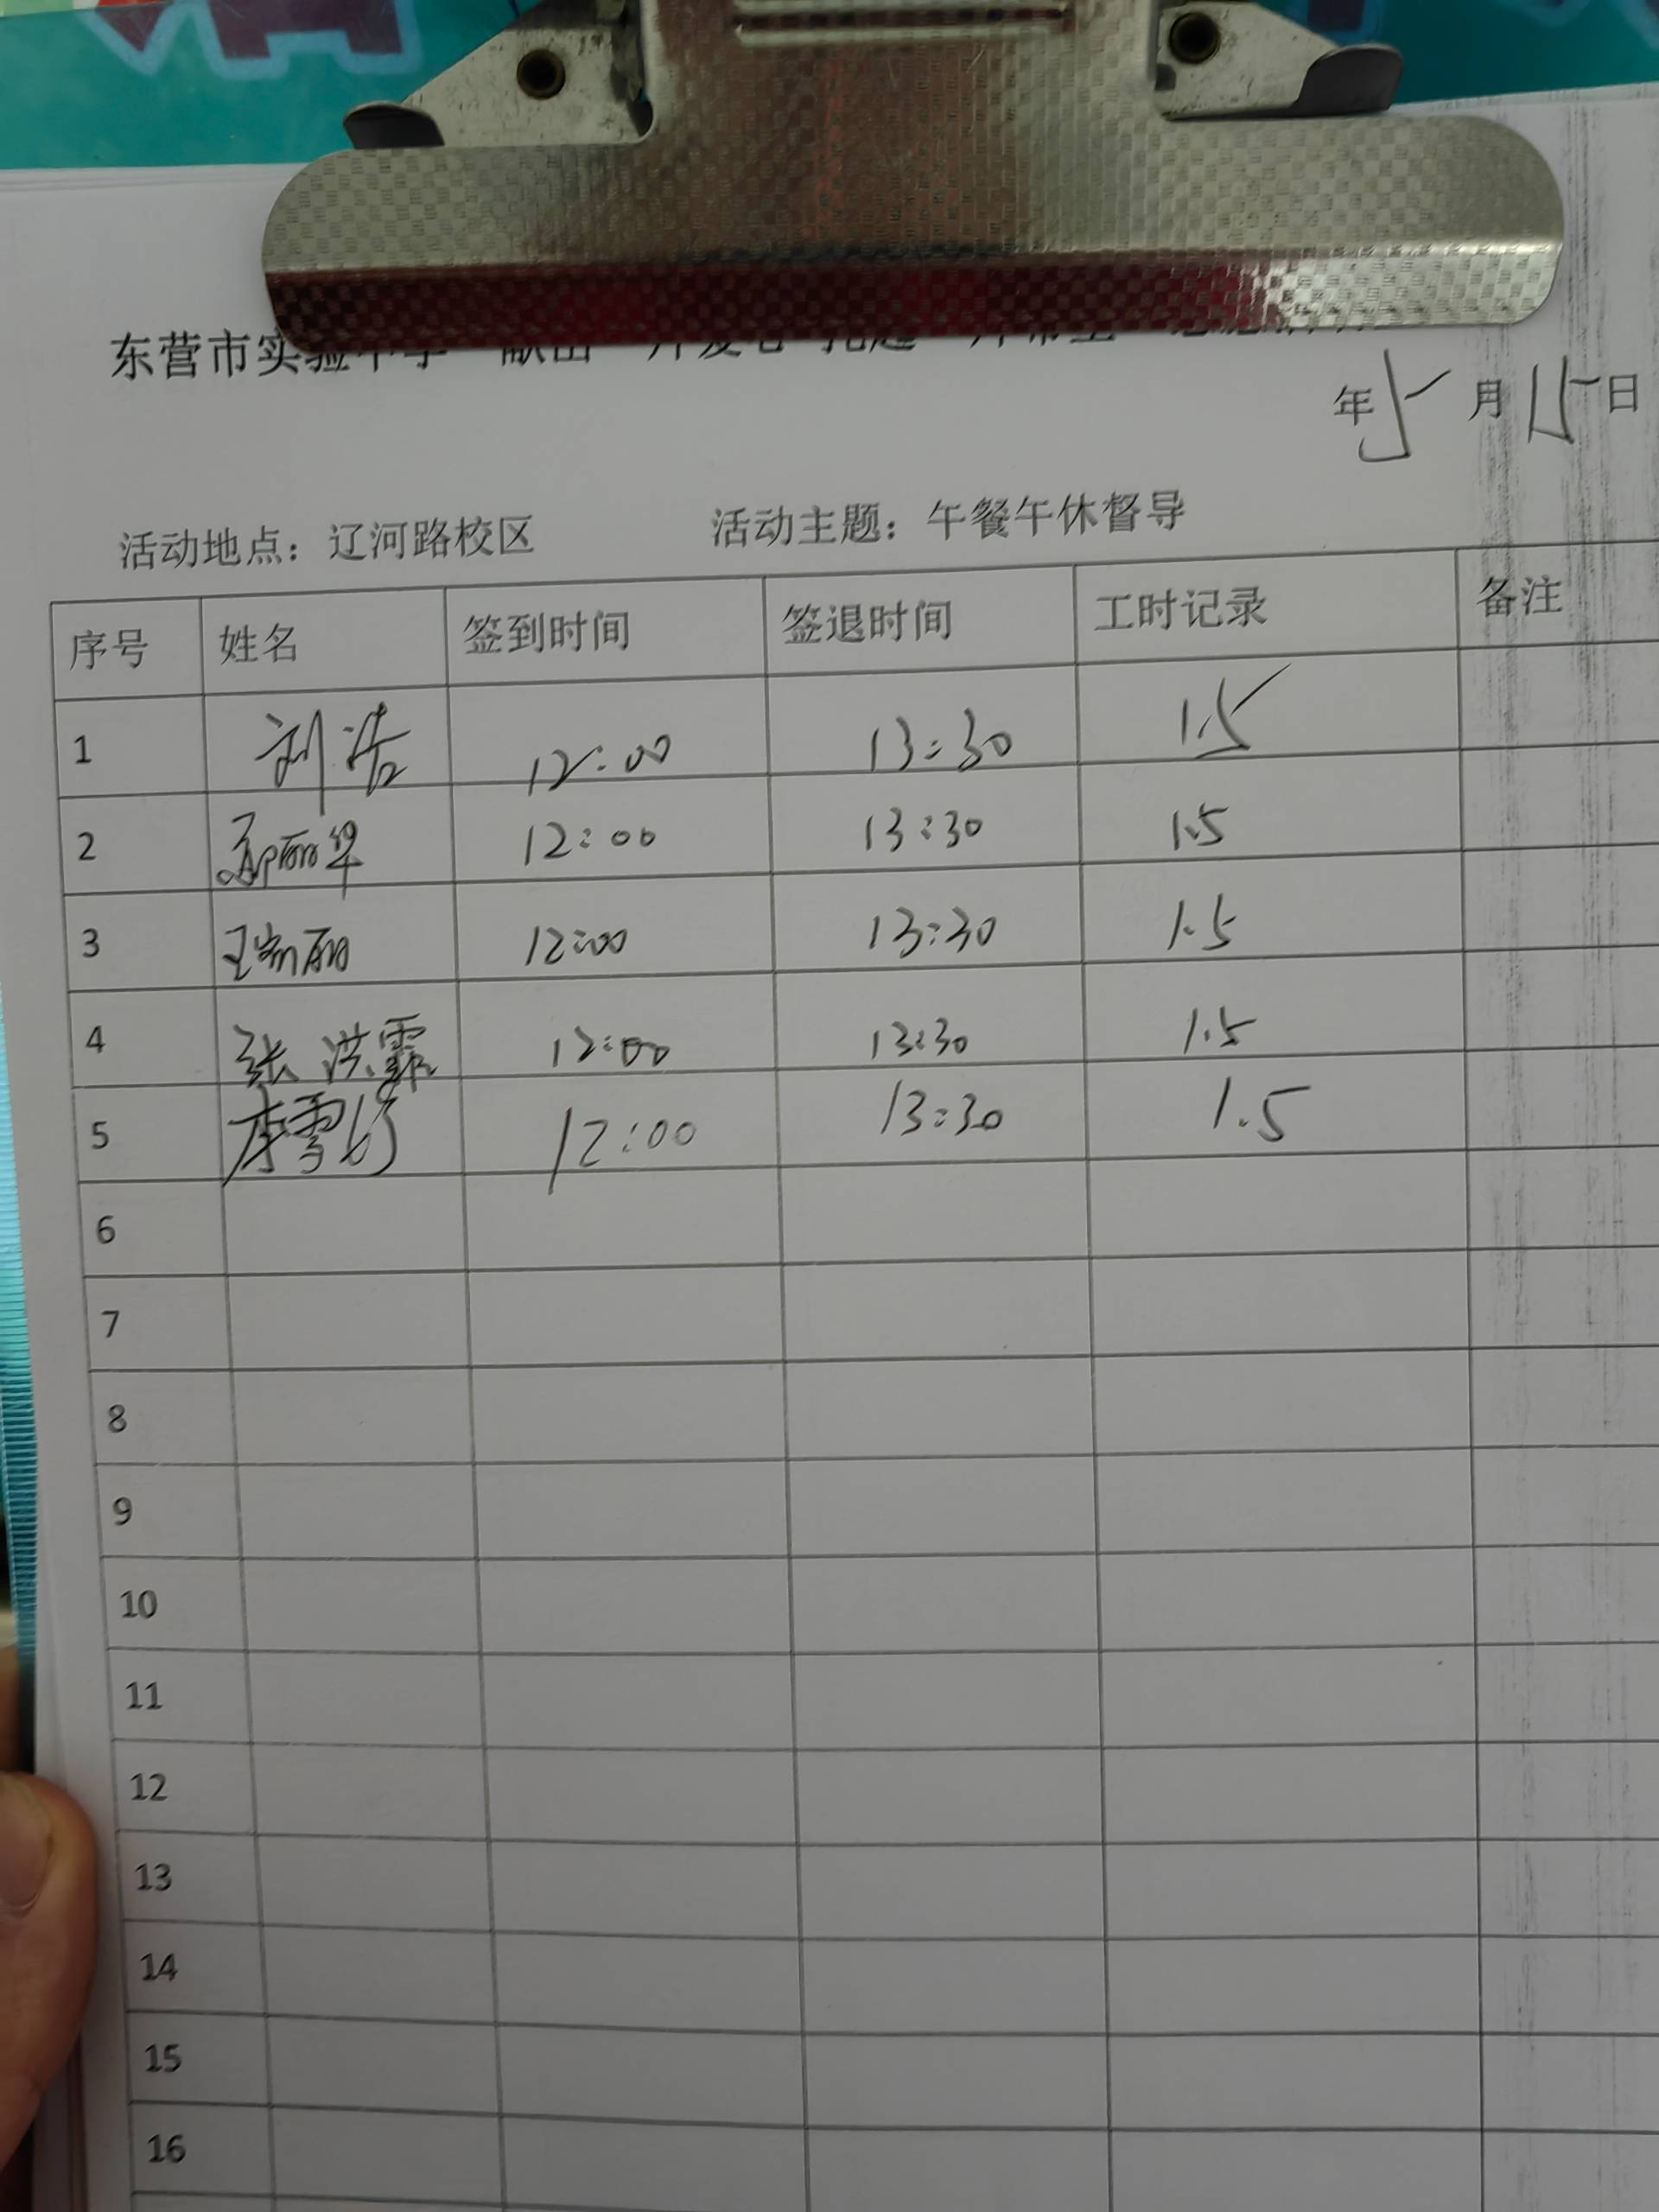 东营市实验中学
年 5 月 15 日
活动地点：辽河路校区 活动主题：午餐午休督导
序号 姓名 签到时间 签退时间 工时记录 备注
1 刘浩 12:00 13:30 1.5
2 12:00 13:30 1.5
3 王瑞丽 12:00 13:30 1.5
4 张洪霞 12:00 13:30 1.5
5 12:00 13:30 1.5
6
7
8
9
10
11
12
13
14
15
16